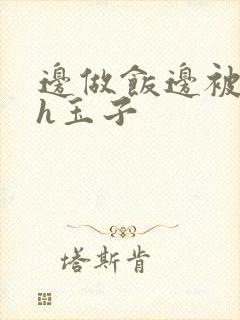 邊做飯邊被
h玉子
塔斯肯